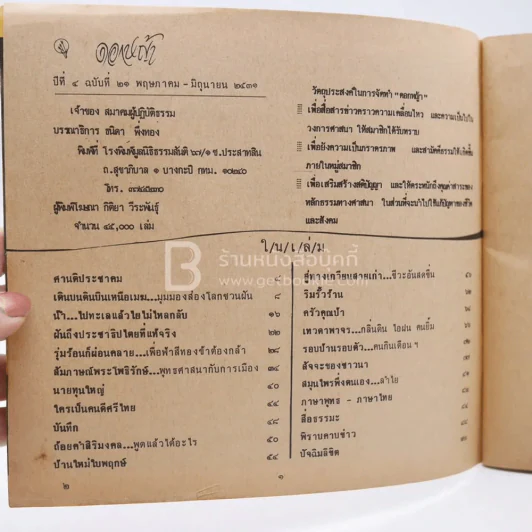 ดอกหญ้า
ปีที่ ๔ ฉบับที่ ๒๑ พฤษภาคม - มิถุนายน ๒๕๓๑
เจ้าของ สมาคมผู้ปฏิบัติธรรม
บรรณาธิการ ธนิดา พึ่งทอง
พิมพ์ที่ โรงพิมพ์มูลนิธิธรรมสันติ ๖๗/๑ ซ.ประสาทสิน
ถ.สุขาภิบาล ๑ บางกะปิ กทม. ๑๐๒๔๐
โทร.
ผู้พิมพ์โฆษณา กิติยา วีระพันธุ์
จำนวน ๔๕,๐๐๐ เล่ม
วัตถุประสงค์ในการจัดทำ "ดอกหญ้า"
เพื่อสื่อสารข่าวคราวความเคลื่อนไหว และความเป็นไปใน
วงการศาสนา ให้สมาชิกได้รับทราบ
เพื่อยังความเป็นภราดรภาพ และสามัคคีธรรมให้เกิดขึ้น
ภายในหมู่สมาชิก
เพื่อเสริมสร้างสติปัญญา และให้ตระหนักถึงคุณค่าสาระของ
หลักธรรมทางศาสนา ในส่วนที่จะนำไปใช้แก้ปัญหาของชีวิต
และสังคม
ใ/น/เ/ล่/ม
ศานติประชาคม ๔
เดินบนดินบินเหนือเมฆ...มุมมองส่องโลกชวนฝัน ๘
น้ำ...ไปทะเลแล้วใยไม่ไหลกลับ ๑๖
ฝันถึงประชาธิปไตยที่แท้จริง ๒๒
รุ่มร้อนก็ผ่อนคลาย...เพื่อฟ้าสีทองข้าต้องกล้า ๒๘
สัมภาษณ์พระโพธิรักษ์...พุทธศาสนากับการเมือง ๓๔
นายทุนใหญ่ ๔๐
ใครเป็นคนดีศรีไทย ๔๔
บันทึก ๔๘
ถ้อยคำสิริมงคล...พูดแล้วได้อะไร ๕๐
บ้านใหม่ใบพฤกษ์ ๕๔
สู่ทางเกวียนสายเก่า...ชีวะอันสดชื่น
ริมรั้วร้าน
ครัวคุณป้า
เทวดาพาจร...กลิ่นดิน ไอฝน คนยิ้ม
รอบบ้านรอบตัว...คนกินเดือน ฯ
สัจจะของชาวนา
สมุนไพรพึ่งตนเอง...ลำไย
ภาษาพุทธ - ภาษาไทย
สื่อธรรมะ
พิราบคาบข่าว
ปัจฉิมลิขิต
๒
๑
B ร้านหนังสือบุ๊คกี้
www.getbookie.com